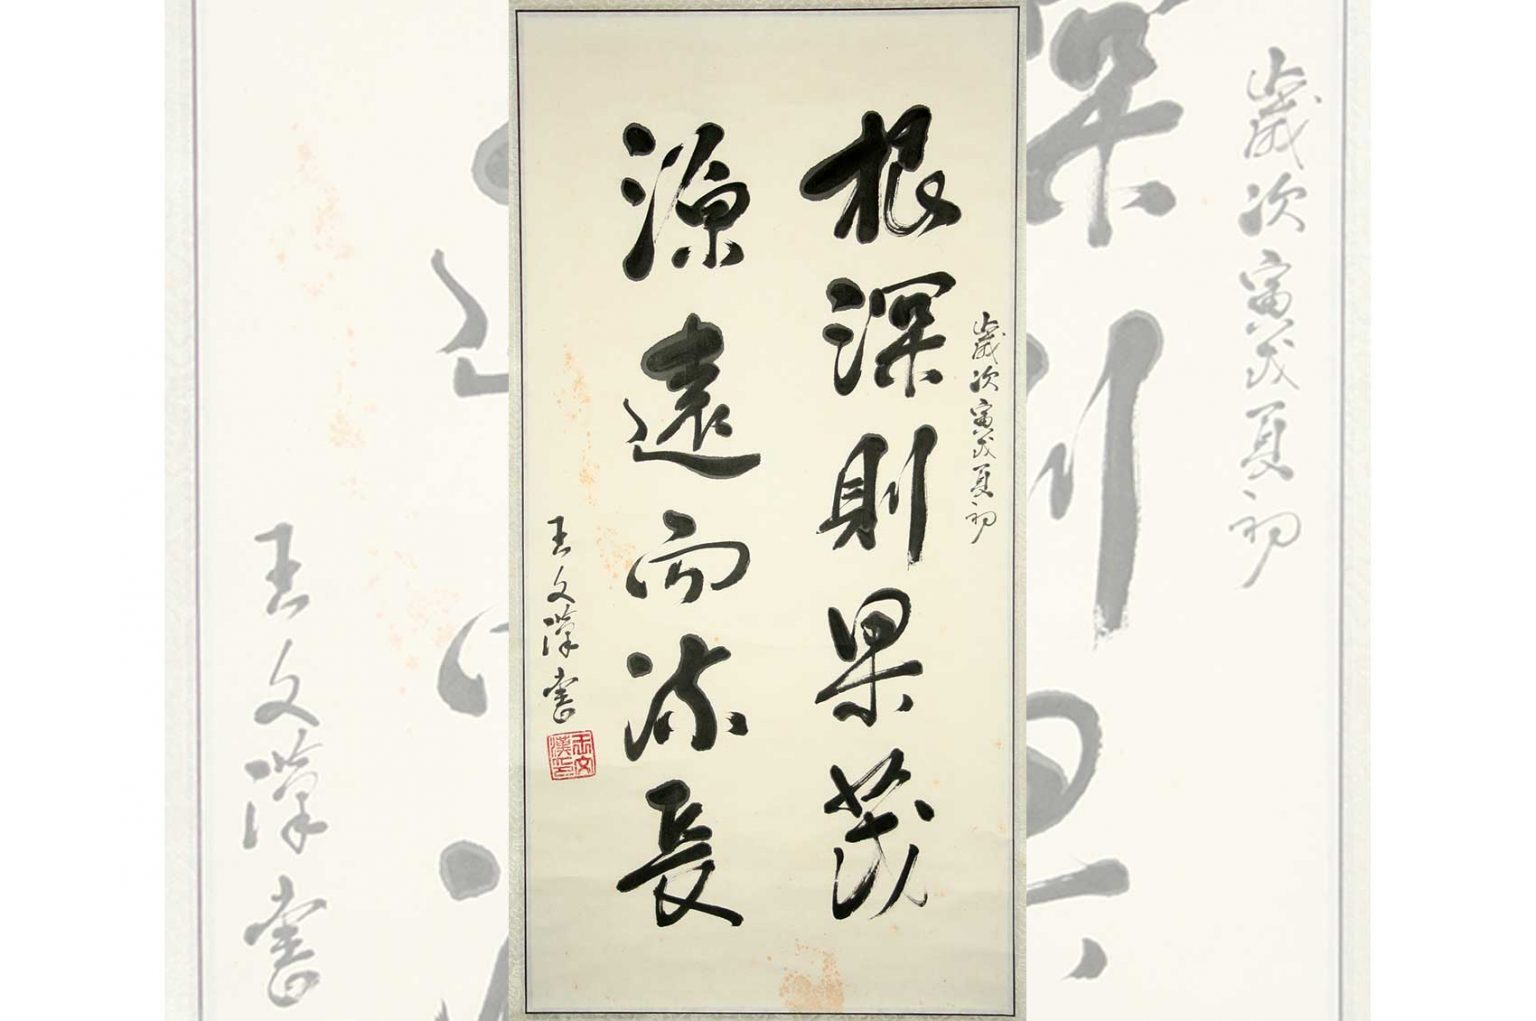 歲次寅夏初
根深則果茂
源遠而流長
王文漢書
王文漢印